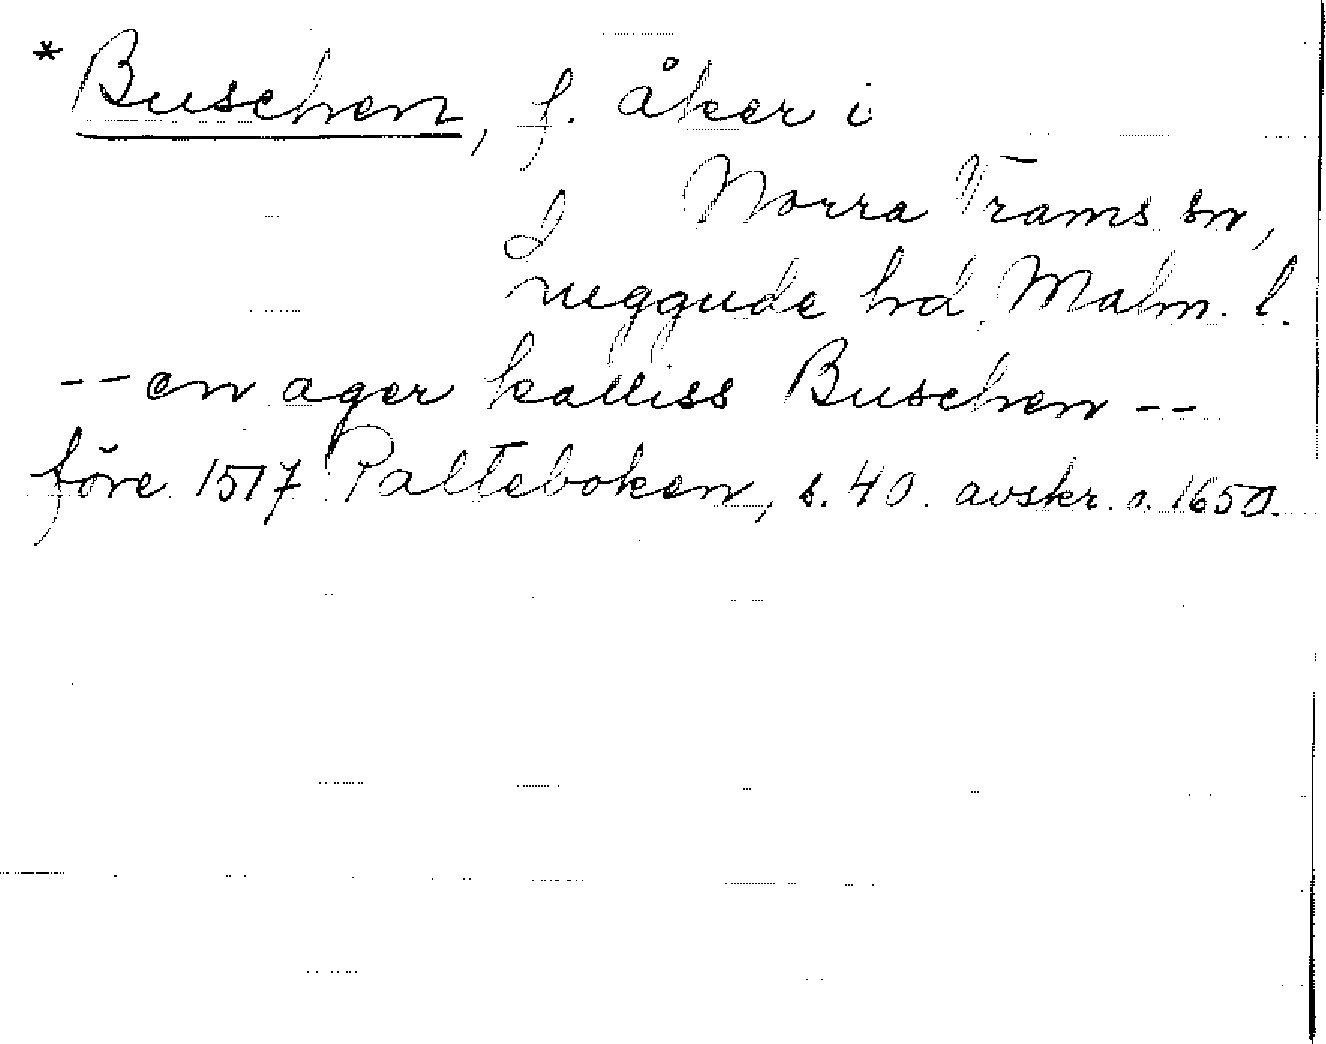 * Buschen, f. åker i
Norra Vrams sn,
Luggude hd, Malm. l.
-- en ager kalliss Buschen --
före 1517 Palteboken, s. 40. avskr. o. 1650.